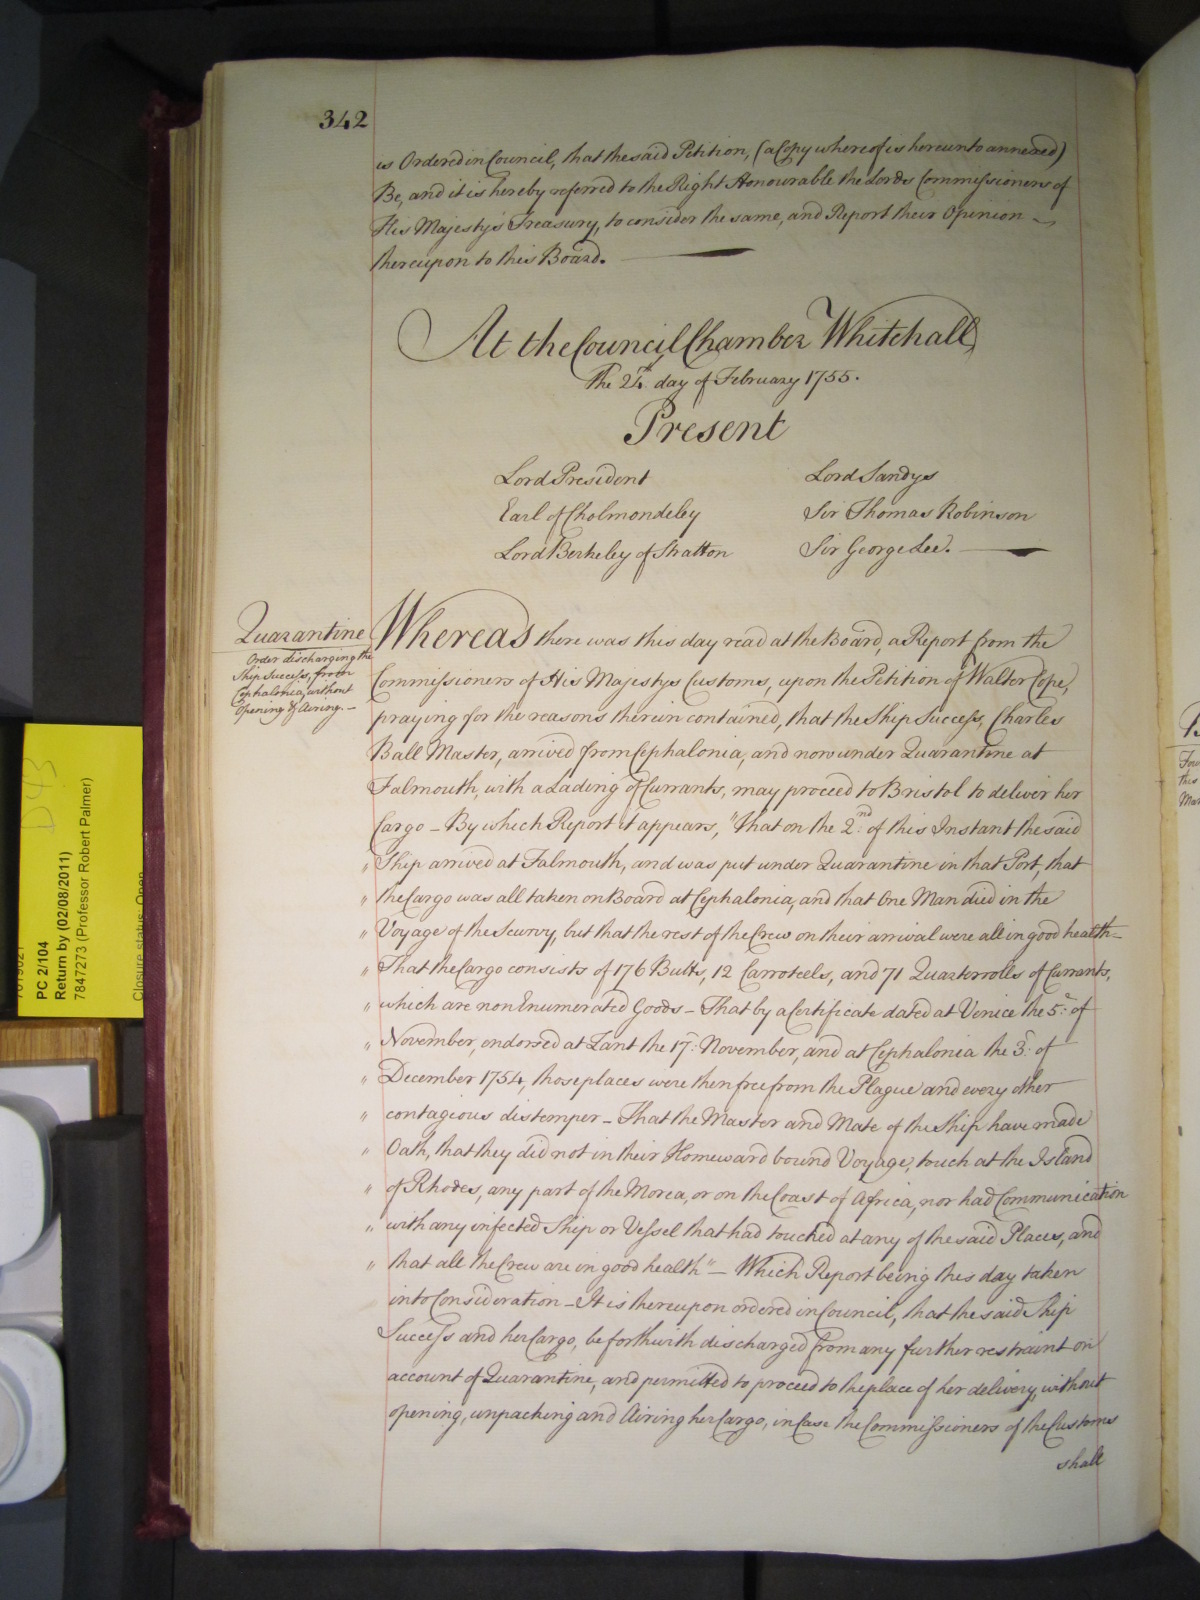 342
is Ordered in Council, that the said Petition, (a Copy whereof is hereunto annexed)
Be, and it is hereby referred to the Right Honourable the Lords Commissioners of
His Majestys Treasury, to consider the same, and Report their Opinion
thereupon to this Board.
At the Council Chamber Whitehall
The 24th day of February 1755.
Present
Lord President
Lord Sandys
Earl of Cholmondeley
Sir Thomas Robinson
Lord Berkeley of Stratton
Sir George Lee.
Quarantine
Order discharging the
Ship Success, from
Cephalonia, without
Opening & Airing. —
Whereas there was this day read at the Board, a Report from the
Commissioners of His Majestys Customs, upon the Petition of Walter Cope,
praying for the reasons therein contained, that the Ship Success, Charles
Ball Master, arrived from Cephalonia, and now under Quarantine at
Falmouth, with a Lading of Currants, may proceed to Bristol to deliver her
Cargo — By which Report it appears, "That on the 2nd of this Instant the said
" Ship arrived at Falmouth, and was put under Quarantine in that Port, that
" the Cargo was all taken on Board at Cephalonia, and that One Man died in the
" Voyage of the Scurvy, but that the rest of the Crew on their arrival were all in good health —
" That the Cargo consists of 176 Butts, 12 Carroteels, and 71 Quarterrolls of Currants,
" which are non Enumerated Goods — That by a Certificate dated at Venice the 5th of
" November, endorsed at Zant the 17th November, and at Cephalonia the 3d of
" December 1754, those places were then free from the Plague and every other
" contagious distemper — That the Master and Mate of the Ship have made
" Oath, that they did not in their Homeward bound Voyage, touch at the Island
" of Rhodes, any part of the Morea, or on the Coast of Africa, nor had Communication
" with any infected Ship or Vessel that had touched at any of the said Places, and
" that all the Crew are in good health" — Which Report being this day taken
into Consideration — It is thereupon ordered in Council, that the said Ship
Success and her Cargo, be forthwith discharged from any further restraint on
account of Quarantine, and permitted to proceed to the place of her delivery, without
opening, unpacking and Airing her Cargo, in Case the Commissioners of the Customs
shall
PC 2/104
Return by (02/08/2011)
7847273 (Professor Robert Palmer)
Closure status: Open